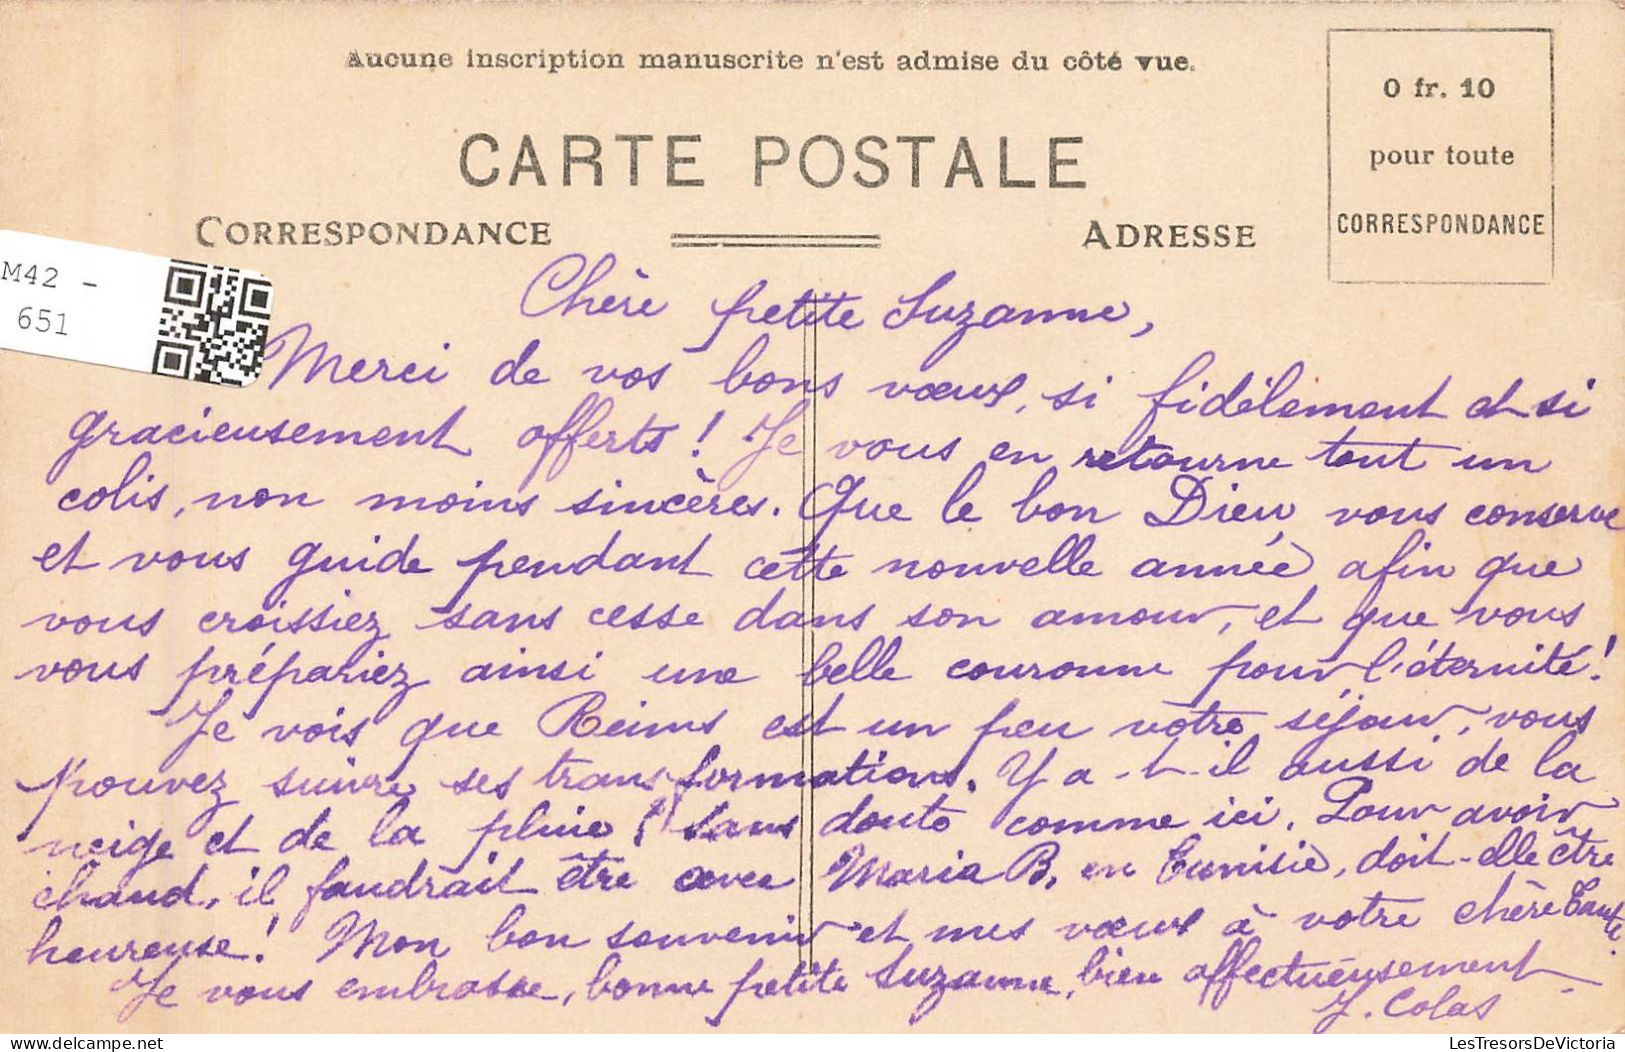 Aucune inscription manuscrite n'est admise du côté vue.
0 fr. 10
pour toute
CORRESPONDANCE
CARTE POSTALE
CORRESPONDANCE
ADRESSE
M42 -
651
Chère petite Suzanne,
Merci de vos bons vœux, si fidèlement et si
gracieusement offerts ! Je vous en retourne tout un
colis, non moins sincères. Que le bon Dieu vous conserve
et vous guide pendant cette nouvelle année afin que
vous croissiez sans cesse dans son amour, et que vous
vous prépariez ainsi une belle couronne pour l'éternité !
Je vois que Reims est un peu votre séjour, vous
pouvez suivre ses transformations. Y a-t-il aussi de la
neige et de la pluie ! sans doute comme ici. Pour avoir
chaud, il faudrait être avec Maria B. en Tunisie, doit-elle être
heureuse ! Mon bon souvenir et mes vœux à votre chère Tante.
Je vous embrasse, bonne petite Suzanne, bien affectueusement.
J. Colas
LesTresorsDeVictoria